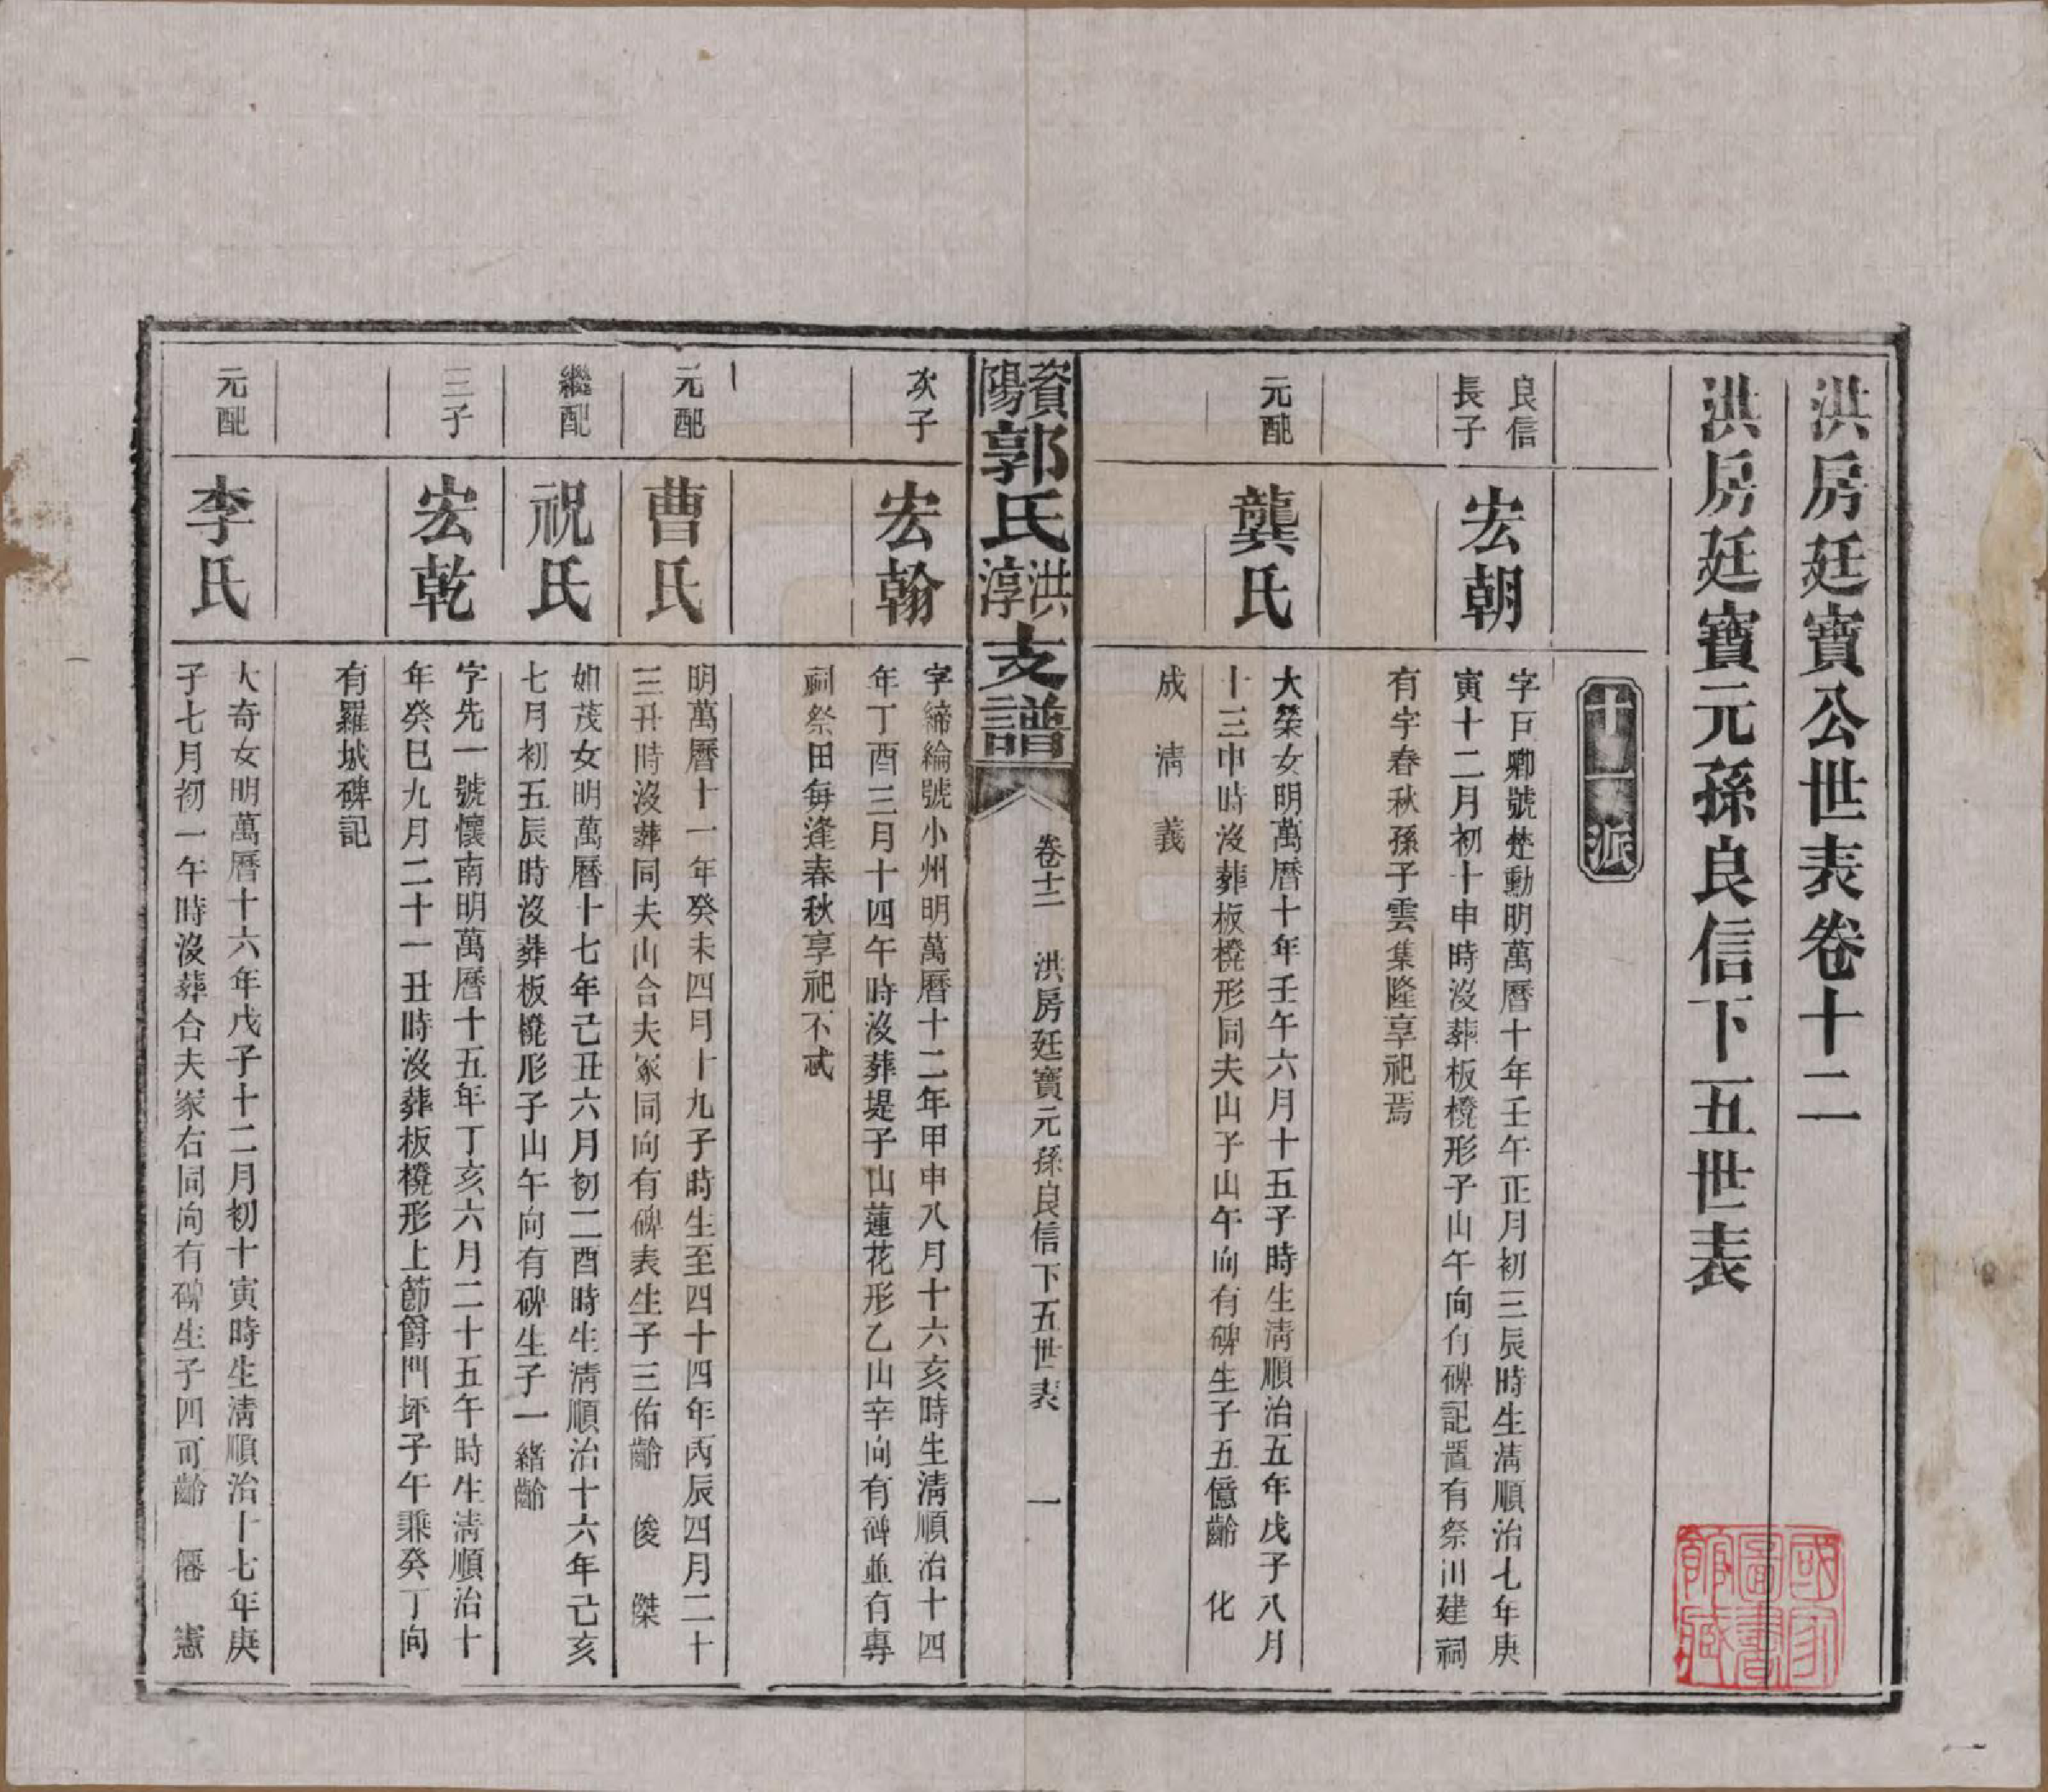 洪房廷寶公世表卷十二
洪房廷寶元孫良信下五世表
十一派
良信
長子
宏朝
字巨卿號楚勳明萬曆十年壬午正月初三辰時生淸順治七年庚
寅十二月初十申時沒葬板櫈形子山午向有碑記置有祭田建祠
有字春秋孫子雲集隆享祀焉
元配
龔氏
大榮女明萬曆十年壬午六月十五子時生淸順治五年戊子八月
十三申時沒葬板櫈形同夫山子山午向有碑生子五億齡 化
成 淸 義
資陽郭氏洪淳支譜
卷十二 洪房廷寶元孫良信下五世表 一
次子
宏翰
字締綸號小州明萬曆十二年甲申八月十六亥時生淸順治十四
年丁酉三月十四午時沒葬堤子山蓮花形乙山辛向有碑並有專
祠祭田每逢春秋享祀不忒
元配
曹氏
明萬曆十一年癸未四月十九子時生至四十四年丙辰四月二十
三丑時沒葬同夫山合夫冢同向有碑表生子三佑齡 俊 傑
繼配
祝氏
如茂女明萬曆十七年己丑六月初二酉時生淸順治十六年己亥
七月初五辰時沒葬板櫈形子山午向有碑生子一緒齡
三子
宏乾
字先一號懷南明萬曆十五年丁亥六月二十五午時生淸順治十
年癸巳九月二十一丑時沒葬板櫈形上節爵門坏子午乘癸丁向
有羅城碑記
元配
李氏
大奇女明萬曆十六年戊子十二月初十寅時生淸順治十七年庚
子七月初一午時沒葬合夫冢右同向有碑生子四可齡 僊 憲
國家圖書館藏